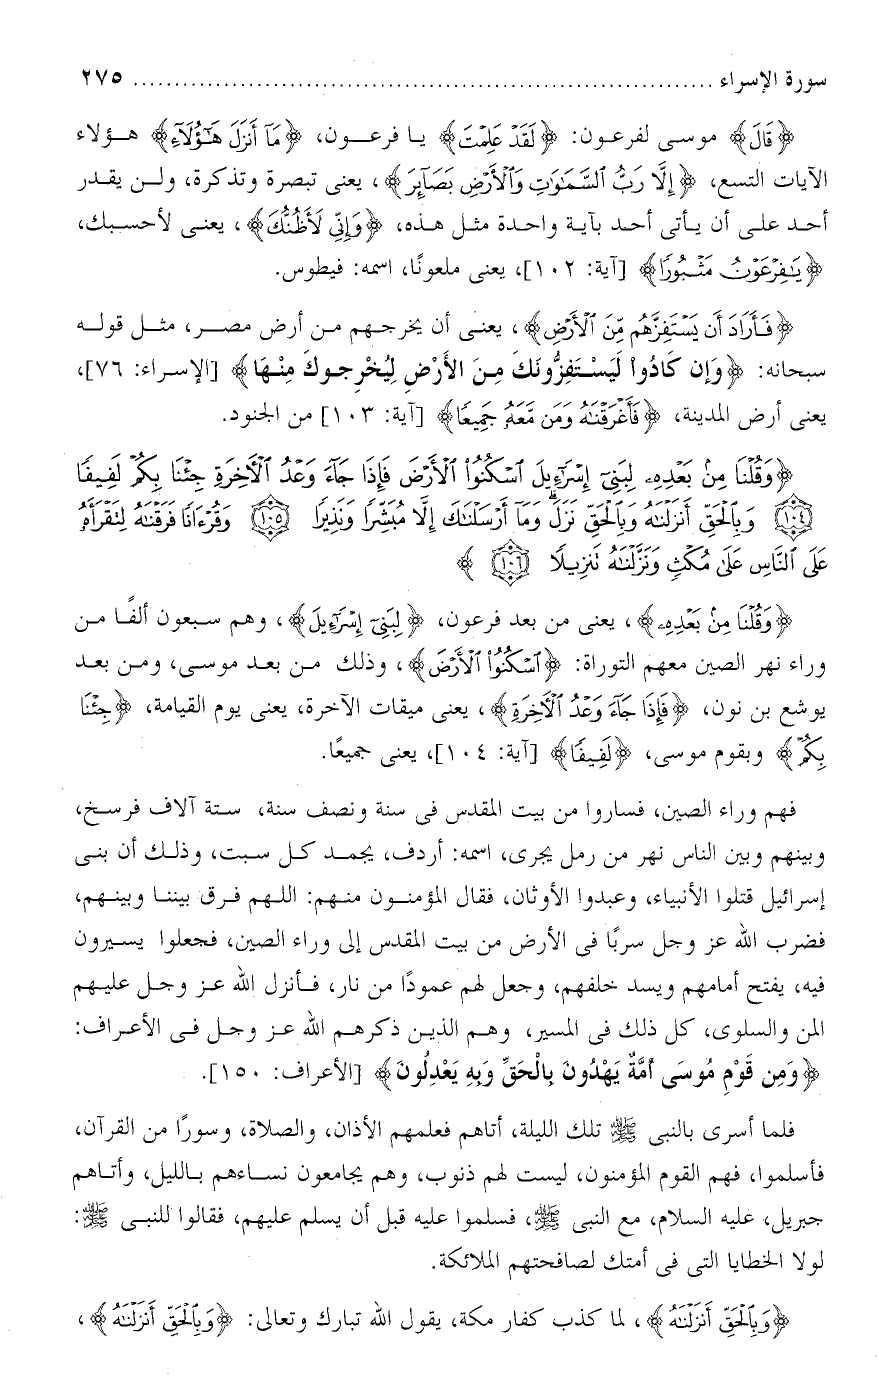 سورة الإسراء ........................................................................ ٢٧٥
﴿قَالَ﴾ موسى لفرعون: ﴿لَقَدْ عَلِمْتَ﴾ يا فرعون، ﴿مَآ أَنزَلَ هَٰٓؤُلَآءِ﴾ هؤلاء
الآيات التسع، ﴿إِلَّا رَبُّ ٱلسَّمَٰوَٰتِ وَٱلْأَرْضِ بَصَآئِرَ﴾، يعنى تبصرة وتذكرة، ولن يقدر
أحد على أن يأتى أحد بآية واحدة مثل هذه، ﴿وَإِنِّى لَأَظُنُّكَ﴾، يعنى لأحسبك،
﴿يَٰفِرْعَوْنُ مَثْبُورًا﴾ [آية: ١٠٢]، يعنى ملعونًا، اسمه: فيطوس.
﴿فَأَرَادَ أَن يَسْتَفِزَّهُم مِّنَ ٱلْأَرْضِ﴾، يعنى أن يخرجهم من أرض مصر، مثل قوله
سبحانه: ﴿وَإِن كَادُواْ لَيَسْتَفِزُّونَكَ مِنَ الأَرْضِ لِيُخْرِجوكَ مِنْهَا﴾ [الإسراء: ٧٦]،
يعنى أرض المدينة، ﴿فَأَغْرَقْنَٰهُ وَمَن مَّعَهُۥ جَمِيعًا﴾ [آية: ١٠٣] من الجنود.
﴿وَقُلْنَا مِنۢ بَعْدِهِۦ لِبَنِىٓ إِسْرَٰٓءِيلَ ٱسْكُنُواْ ٱلْأَرْضَ فَإِذَا جَآءَ وَعْدُ ٱلْأَخِرَةِ جِئْنَا بِكُمْ لَفِيفًا
١٠٤ وَبِٱلْحَقِّ أَنزَلْنَٰهُ وَبِٱلْحَقِّ نَزَلَ ۗ وَمَآ أَرْسَلْنَٰكَ إِلَّا مُبَشِّرًا وَنَذِيرًا ١٠٥ وَقُرْءَانًا فَرَقْنَٰهُ لِتَقْرَأَهُۥ
عَلَى ٱلنَّاسِ عَلَىٰ مُكْثٍ وَنَزَّلْنَٰهُ تَنزِيلًا ١٠٦﴾
﴿وَقُلْنَا مِنۢ بَعْدِهِۦ﴾، يعنى من بعد فرعون، ﴿لِبَنِىٓ إِسْرَٰٓءِيلَ﴾، وهم سبعون ألفًا من
وراء نهر الصين معهم التوراة: ﴿ٱسْكُنُواْ ٱلْأَرْضَ﴾، وذلك من بعد موسى، ومن بعد
يوشع بن نون، ﴿فَإِذَا جَآءَ وَعْدُ ٱلْأَخِرَةِ﴾، يعنى ميقات الآخرة، يعنى يوم القيامة، ﴿جِئْنَا
بِكُمْ﴾ وبقوم موسى، ﴿لَفِيفًا﴾ [آية: ١٠٤]، يعنى جميعًا.
فهم وراء الصين، فساروا من بيت المقدس فى سنة ونصف سنة، ستة آلاف فرسخ،
وبينهم وبين الناس نهر من رمل يجرى، اسمه: أردف، يجمد كل سبت، وذلك أن بنى
إسرائيل قتلوا الأنبياء، وعبدوا الأوثان، فقال المؤمنون منهم: اللهم فرق بيننا وبينهم،
فضرب الله عز وجل سربًا فى الأرض من بيت المقدس إلى وراء الصين، فجعلوا يسيرون
فيه، يفتح أمامهم ويسد خلفهم، وجعل لهم عمودًا من نار، فأنزل الله عز وجل عليهم
المن والسلوى، كل ذلك فى المسير، وهم الذين ذكرهم الله عز وجل فى الأعراف:
﴿وَمِن قَوْمِ مُوسَى أمَّةٌ يَهْدُونَ بِالْحَقِّ وَبِهِ يَعْدِلُونَ﴾ [الأعراف: ١٥٠].
فلما أسرى بالنبى ﷺ تلك الليلة، أتاهم فعلمهم الأذان، والصلاة، وسورًا من القرآن،
فأسلموا، فهم القوم المؤمنون، ليست لهم ذنوب، وهم يجامعون نساءهم بالليل، وأتاهم
جبريل، عليه السلام، مع النبى ﷺ، فسلموا عليه قبل أن يسلم عليهم، فقالوا للنبى ﷺ:
لولا الخطايا التى فى أمتك لصافحتهم الملائكة.
﴿وَبِٱلْحَقِّ أَنزَلْنَٰهُ﴾، لما كذب كفار مكة، يقول الله تبارك وتعالى: ﴿وَبِٱلْحَقِّ أَنزَلْنَٰهُ﴾،